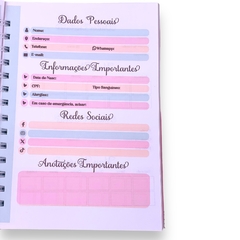 Dados Pessoais
Nome:
Endereço:
Telefone: Whatsapp:
E-mail:
Informações Importantes
Data de Nasc:
CPF: Tipo Sanguíneo:
Alergias:
Em caso de emergência, avisar:
Redes Sociais
Anotações Importantes